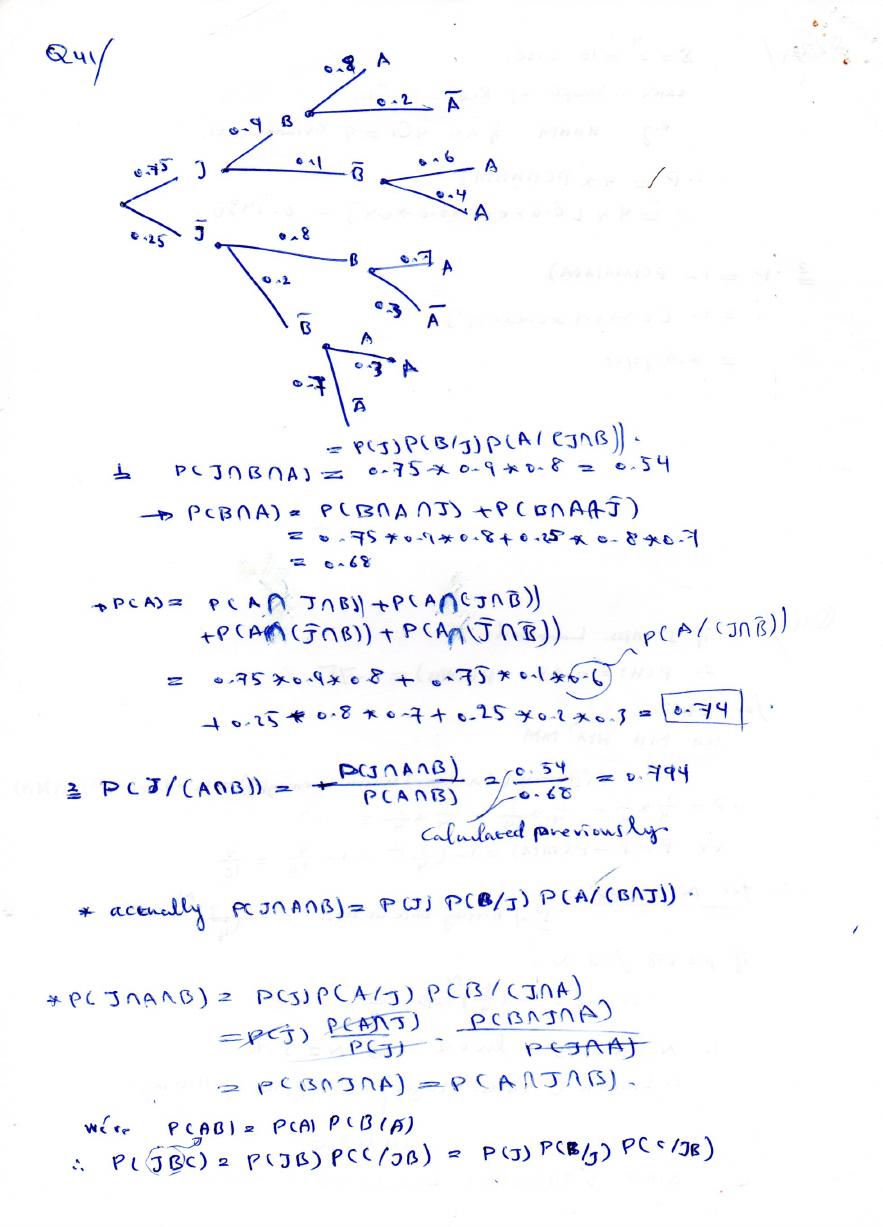 Q41/
0.8 A
0.2 Ā
0.9 B
0.75 J
0.1 B̄
0.6 A
0.4 A
0.25 J̄
0.8 B
0.7 A
0.3 Ā
0.2
B̄
A
0.3 A
0.7
Ā
= P(J)P(B/J)P(A/(J∩B)).
1 P(J∩B∩A) = 0.75 * 0.9 * 0.8 = 0.54
→ P(B∩A) = P(B∩A∩J) + P(B∩A∩J̄)
= 0.75 * 0.9 * 0.8 + 0.25 * 0.8 * 0.7
= 0.68
→ P(A) = P(A∩ J∩B)) + P(A∩(J∩B̄))
+ P(A∩(J̄∩B)) + P(A∩(J̄∩B̄))
P(A/(J∩B̄))
= 0.75 * 0.9 * 0.8 + 0.75 * 0.1 * 0.6
+ 0.25 * 0.8 * 0.7 + 0.25 * 0.2 * 0.3 = 0.74 .
2 P(J/(A∩B)) = P(J∩A∩B) / P(A∩B) = 0.54 / 0.68 = 0.794
Calculated previously
* actually P(J∩A∩B) = P(J) P(B/J) P(A/(B∩J)) .
* P(J∩A∩B) = P(J) P(A/J) P(B/(J∩A)
= P(J) P(A∩J) / P(J) . P(B∩J∩A) / P(J∩A)
= P(B∩J∩A) = P(A∩J∩B) .
P(AB) = P(A) P(B/A)
∴ P(JBC) = P(JB) P(C/JB) = P(J) P(B/J) P(C/JB)